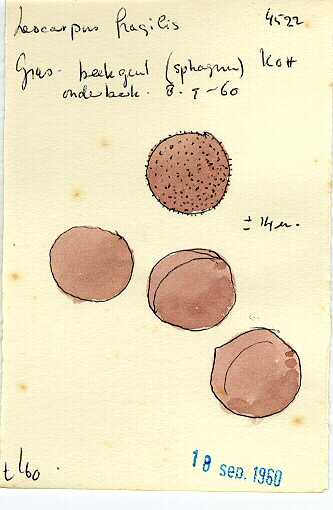 Leocarpus fragilis 4522
Gras- beekgeul (sphagnum) KOH
onderbeek. 8. 9-60
± 14 µ.
t 160
18 sep. 1960